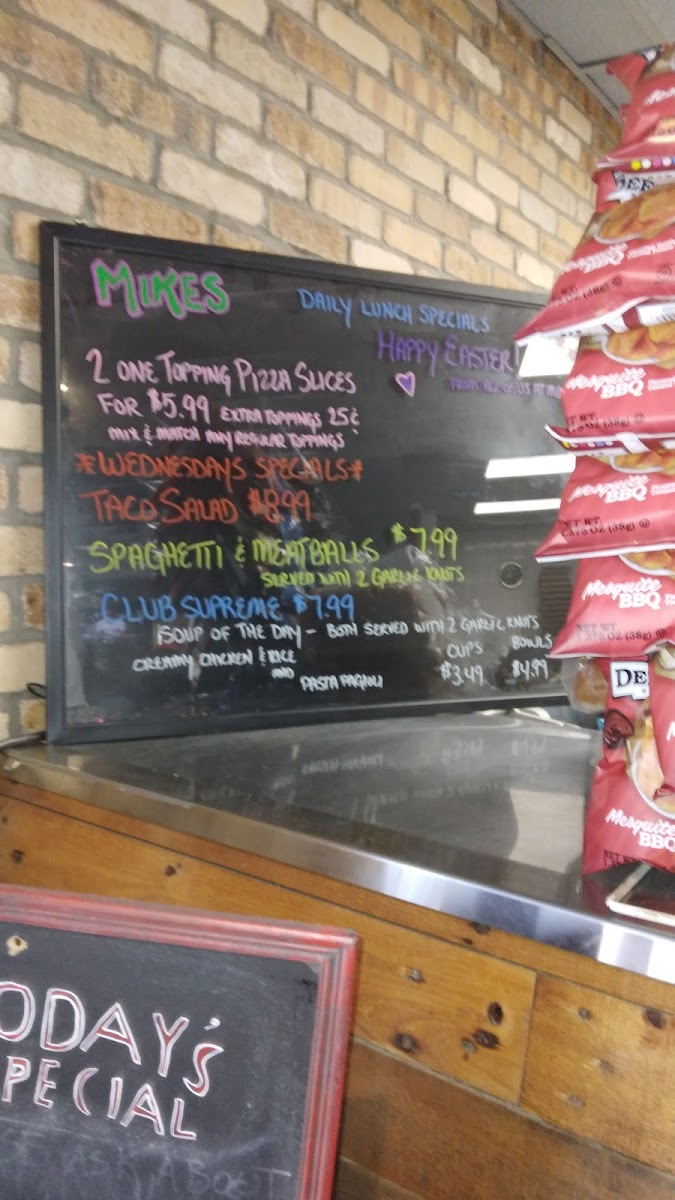 MIKES
DAILY LUNCH SPECIALS
HAPPY EASTER!
FROM ALL OF US AT
2 ONE TOPPING PIZZA SLICES
FOR $5.99 EXTRA TOPPINGS 25¢
MIX & MATCH ANY REGULAR TOPPINGS
*WEDNESDAYS SPECIALS*
TACO SALAD $8.99
SPAGHETTI & MEATBALLS $7.99
SERVED WITH 2 GARLIC KNOTS
CLUB SUPREME $7.99
SOUP OF THE DAY - BOTH SERVED WITH 2 GARLIC KNOTS
CREAMY CHICKEN & RICE
AND
PASTA FAGIOLI
CUPS BOWLS
$3.49 $4.99
Mesquite
BBQ
Mesquite
BBQ
NET WT.
1.375 OZ (38g)
Mesquite
BBQ
NET WT
1.375 OZ (38g)
DE
Mesquite
BBQ
ODAY'S
PECIAL
ASK ABOUT